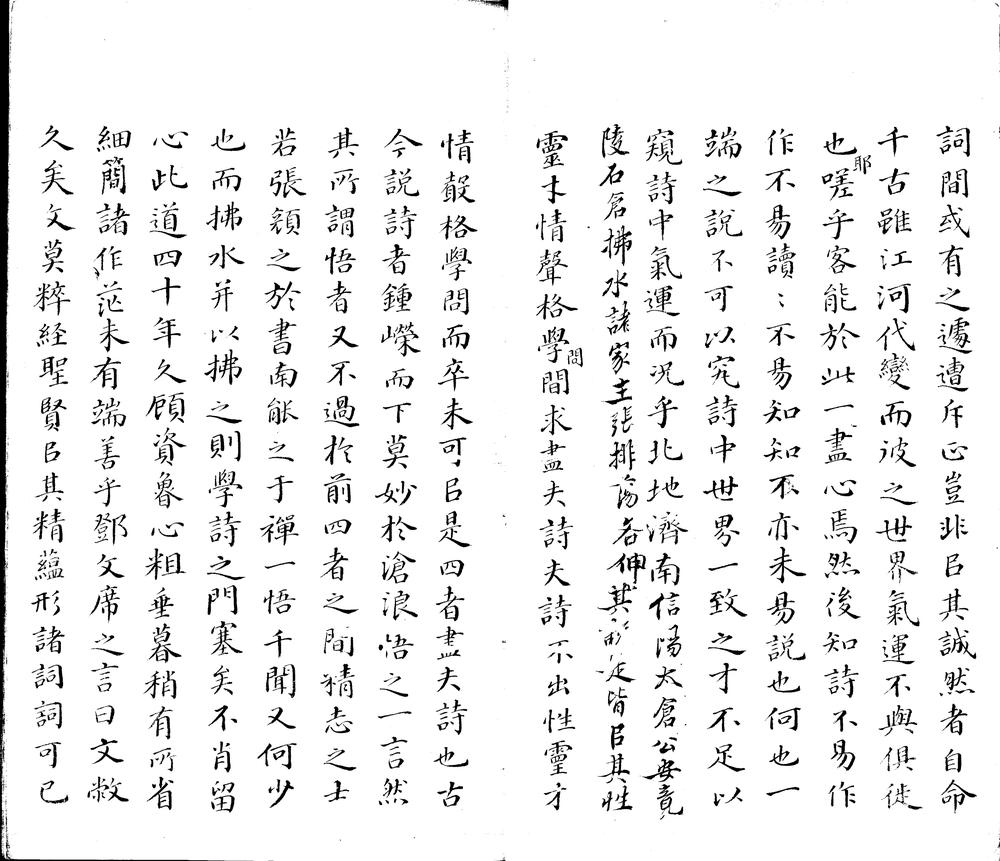 詞間或有之遽遭斥正豈非㠯其誠然者自命
千古雖江河代變而彼之世界氣運不與俱徙
也耶嗟乎客能於此一盡心焉然後知詩不易作
作不易讀〻不易知知不亦未易說也何也一
端之說不可以究詩中世界一致之才不足以
窺詩中氣運而况乎北地濟南信陽太倉公安竟
陵石倉拂水諸家主張排蕩各伸其所是皆㠯其性
靈才情聲格學問間求盡夫詩夫詩不出性靈才
情聲格學問而卒未可㠯是四者盡夫詩也古
今說詩者鍾嶸而下莫妙於滄浪悟之一言然
其所謂悟者又不過於前四者之間精志之士
若張顛之於書南能之于禪一悟千聞又何少
也而拂水并以拂之則學詩之門塞矣不肖留
心此道四十年久顧資魯心粗垂暮稍有所省
細簡諸作茫未有端善乎鄧文席之言曰文敝
久矣文莫粹經聖賢㠯其精蘊形諸詞詞可已